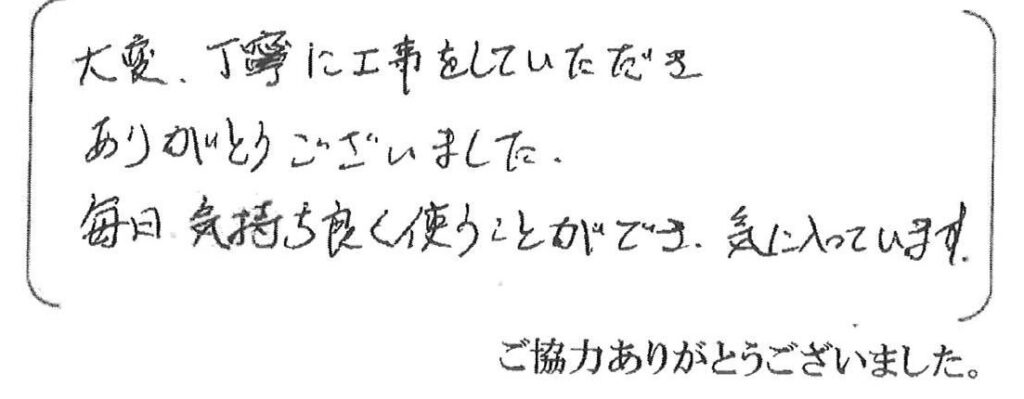 大変、丁寧に工事をしていただき
ありがとうございました.
毎日 気持ち良く使うことができ、気に入っています.
ご協力ありがとうございました。